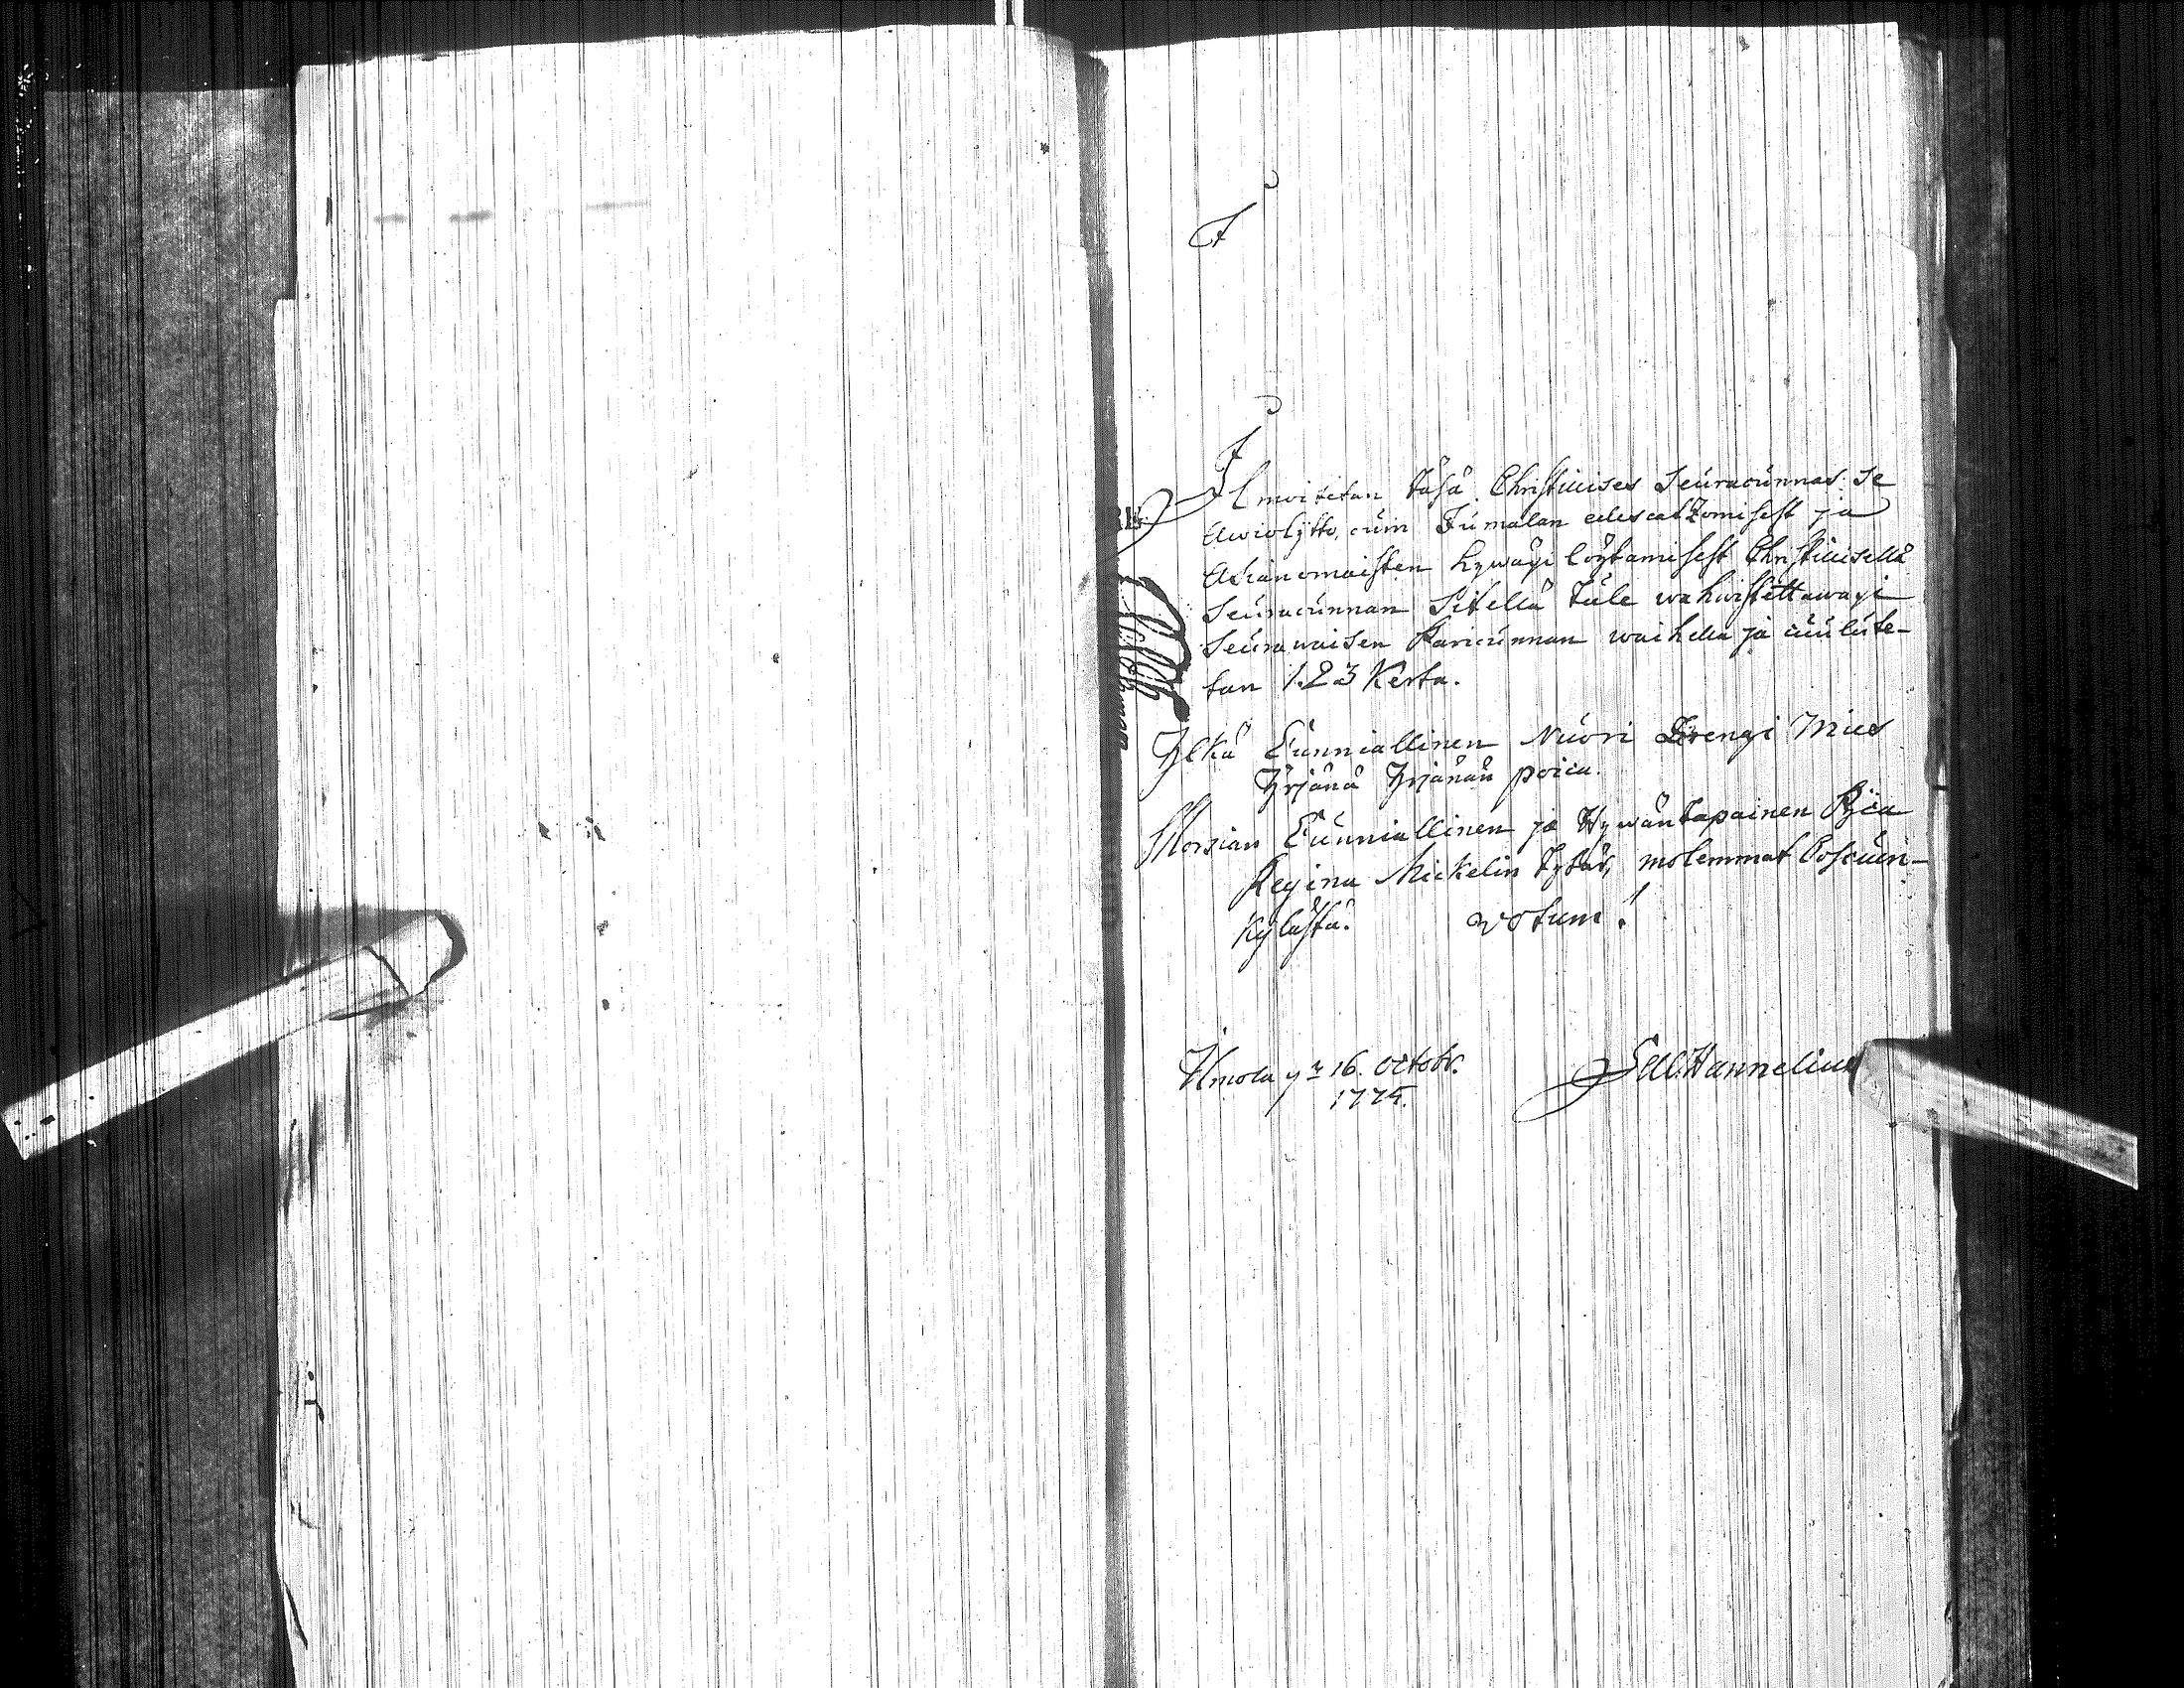 Ilmoitetan täsä Christilises Seuracunnas se
Awiolijtto, cuin Jumalan edescatzomisest ja
Asianomaisten hywäxi löytämisest Christilisellä
Seuracunnan Sitellä tule wahwistettawaxi
Seurawaisen Pariscunnan waihella ja cuulute-
tan 1. 2. 3 Kerta.
Yljkä Cunniallinen Nuori Drengi Mies
Yrjänä Yrjänän poica.
Morsian Cunniallinen ja Hywäntapainen Pijca
Regina Mickelin Tytär, molemmat Coscuen-
kylästä. Votum!
Ilmola 16. Octobr.
1775.
Hannelius